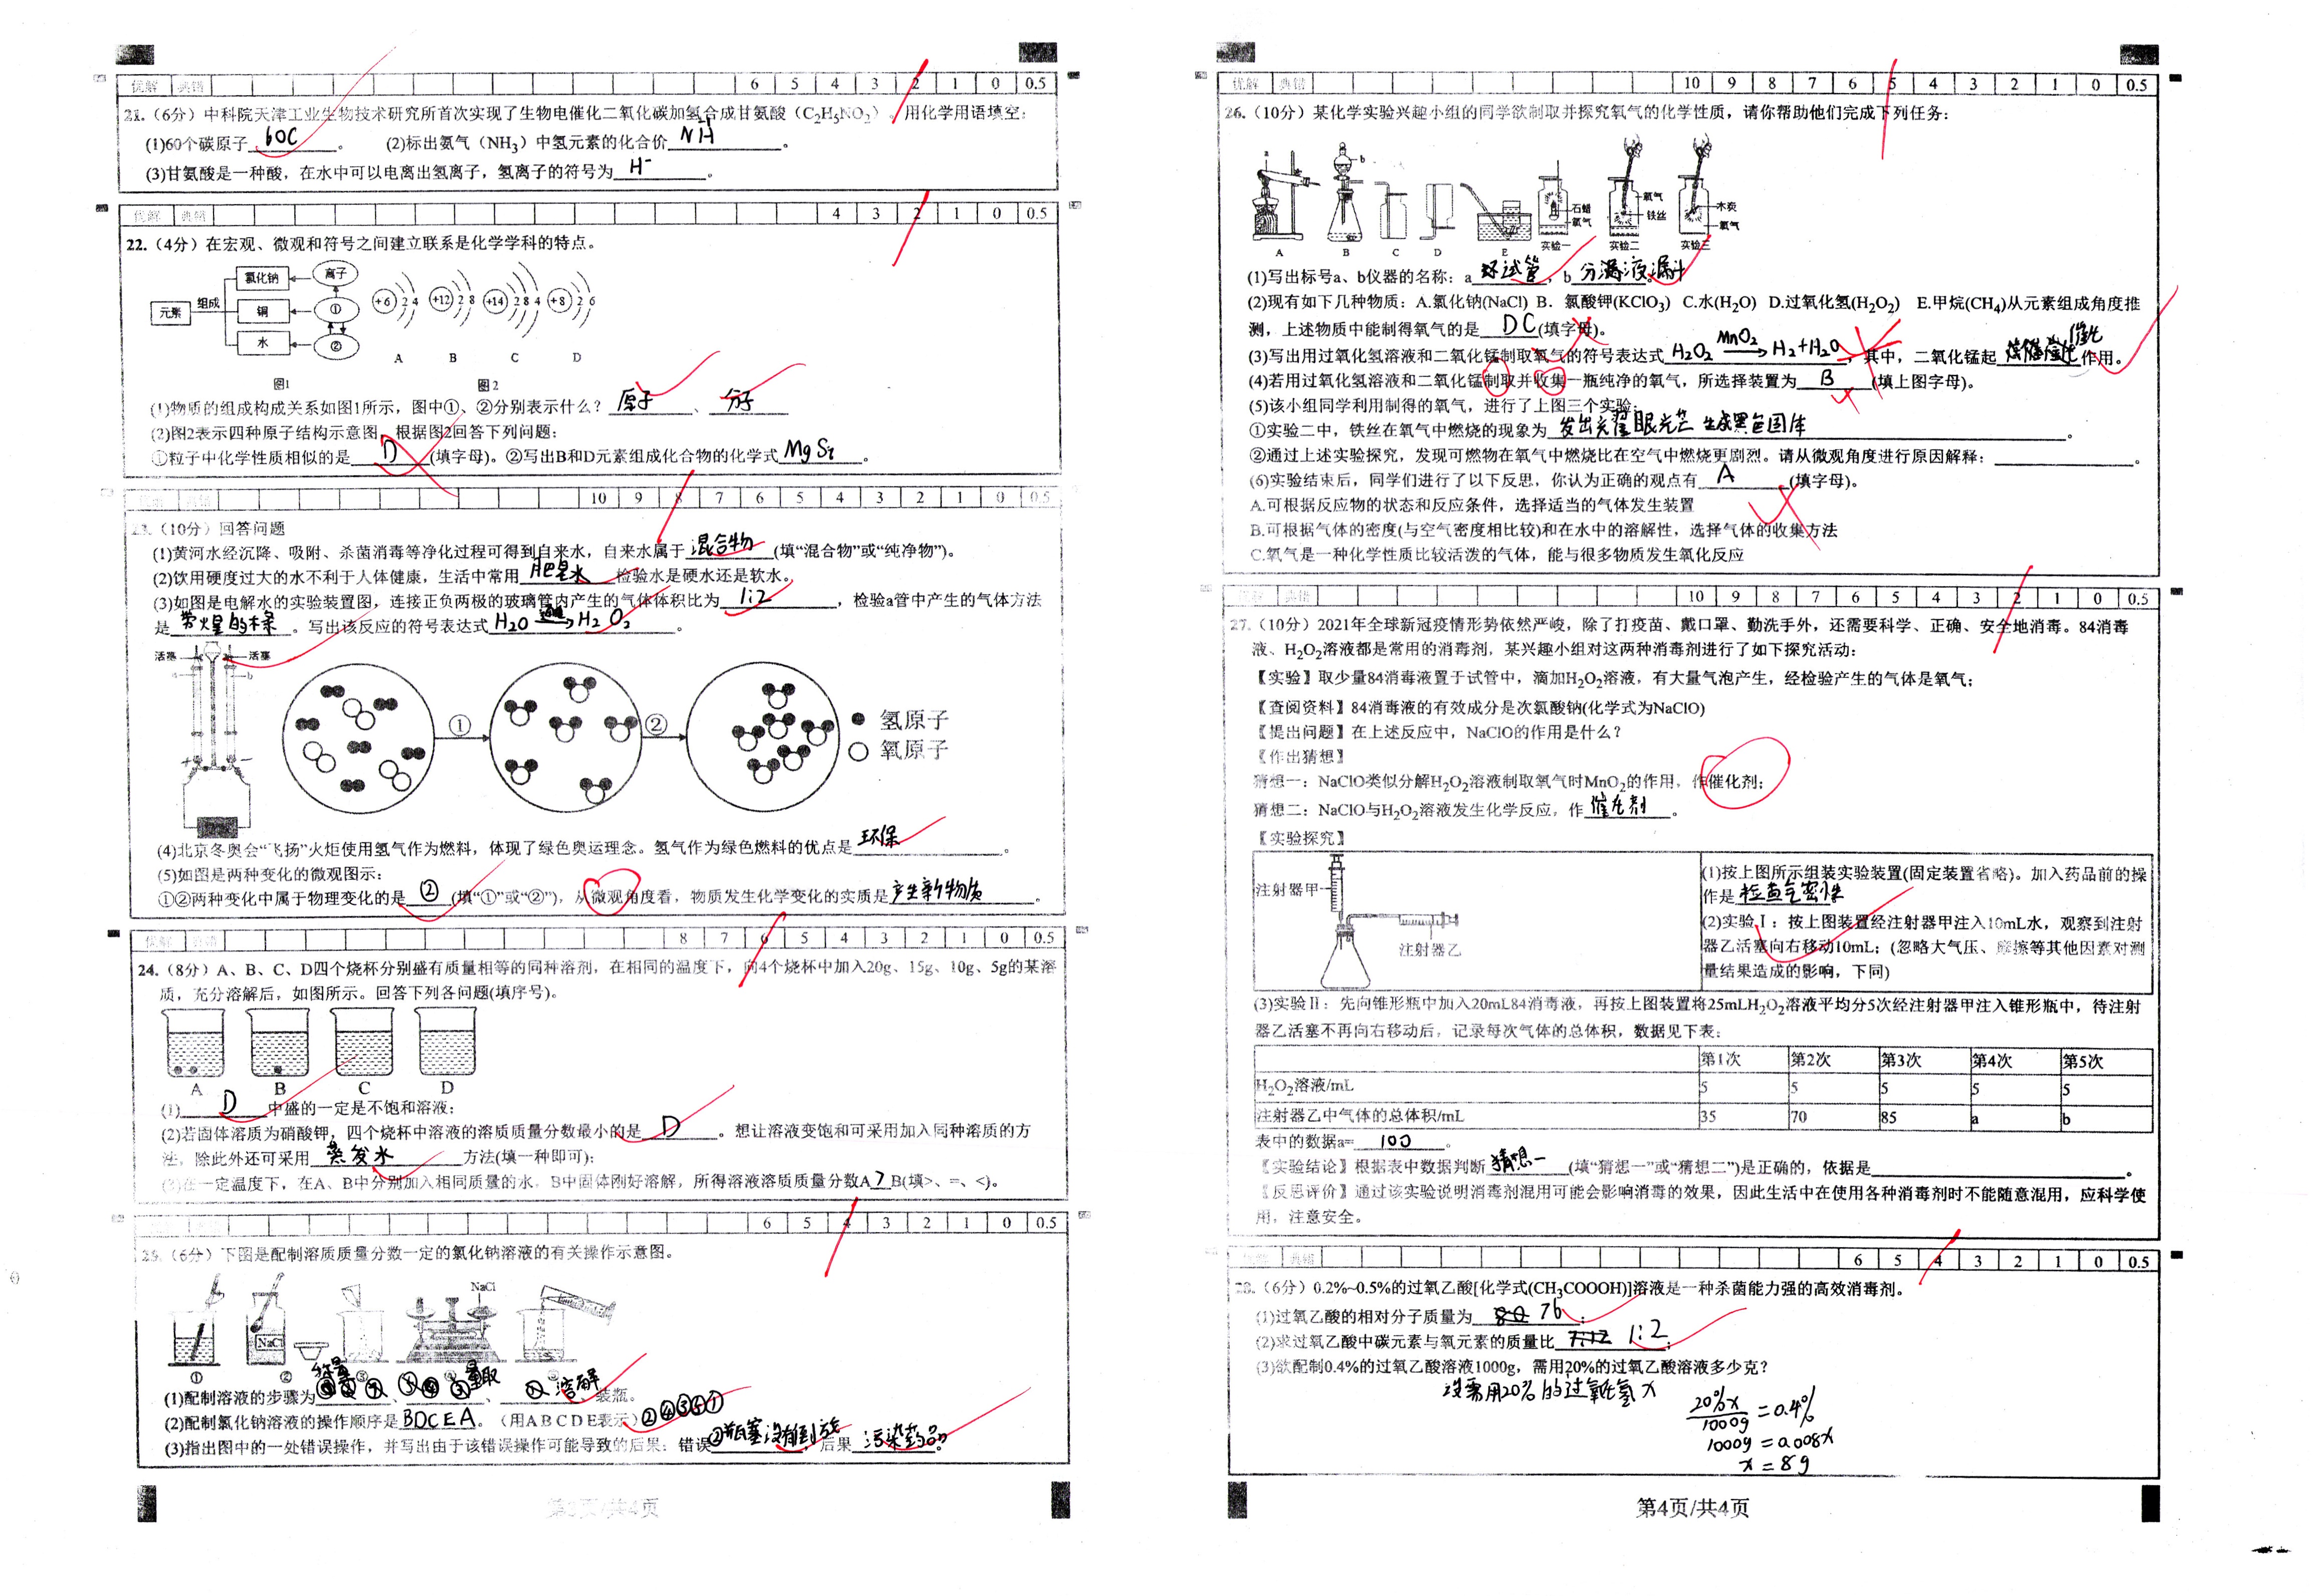 优解 典错 6 5 4 3 2 1 0 0.5
21.（6分）中科院天津工业生物技术研究所首次实现了生物电催化二氧化碳加氢合成甘氨酸（C₂H₅NO₂）。用化学用语填空：
(1)60个碳原子 60C 。 (2)标出氨气（NH₃）中氢元素的化合价 。
(3)甘氨酸是一种酸，在水中可以电离出氢离子，氢离子的符号为 H⁻ 。
优解 典错 4 3 2 1 0 0.5
22.（4分）在宏观、微观和符号之间建立联系是化学学科的特点。
元素 组成 氯化钠 铜 水 离子 ① ②
+6 2 4 +12 2 8 +14 2 8 4 +8 2 6
A B C D
图1 图2
(1)物质的组成构成关系如图1所示，图中①、②分别表示什么？ 原子 、 分子
(2)图2表示四种原子结构示意图，根据图2回答下列问题：
①粒子中化学性质相似的是 D (填字母)。②写出B和D元素组成化合物的化学式 MgSi 。
10 9 8 7 6 5 4 3 2 1 0 0.5
23.（10分）回答问题
(1)黄河水经沉降、吸附、杀菌消毒等净化过程可得到自来水，自来水属于 混合物 (填“混合物”或“纯净物”)。
(2)饮用硬度过大的水不利于人体健康，生活中常用 肥皂水 检验水是硬水还是软水。
(3)如图是电解水的实验装置图，连接正负两极的玻璃管内产生的气体体积比为 1:2 ，检验a管中产生的气体方法
是 带火星的木条 。写出该反应的符号表达式 H2O 通电→ H2 O2 。
活塞 活塞
a b
① ② 氢原子
氧原子
(4)北京冬奥会“飞扬”火炬使用氢气作为燃料，体现了绿色奥运理念。氢气作为绿色燃料的优点是 环保 。
(5)如图是两种变化的微观图示：
①②两种变化中属于物理变化的是 ② (填“①”或“②”)，从微观角度看，物质发生化学变化的实质是 产生新物质 。
优解 典错 8 7 6 5 4 3 2 1 0 0.5
24.（8分）A、B、C、D四个烧杯分别盛有质量相等的同种溶剂，在相同的温度下，向4个烧杯中加入20g、15g、10g、5g的某溶
质，充分溶解后，如图所示。回答下列各问题(填序号)。
A B C D
(1) D 中盛的一定是不饱和溶液；
(2)若固体溶质为硝酸钾，四个烧杯中溶液的溶质质量分数最小的是 D 。想让溶液变饱和可采用加入同种溶质的方
法，除此外还可采用 蒸发水 方法(填一种即可)；
(3)在一定温度下，在A、B中分别加入相同质量的水，B中固体刚好溶解，所得溶液溶质质量分数A > B(填>、=、<)。
优解 典错 6 5 4 3 2 1 0 0.5
25.（6分）下图是配制溶质质量分数一定的氯化钠溶液的有关操作示意图。
NaCl NaCl
① ② ③ ④ ⑤
(1)配制溶液的步骤为 称量 、 量取 、 溶解 、装瓶。
(2)配制氯化钠溶液的操作顺序是 BDCEA 。（用ABCDE表示）②④③⑤①
(3)指出图中的一处错误操作，并写出由于该错误操作可能导致的后果：错误 ②瓶塞没有倒放 ，后果 污染药品 。
第3页/共4页
优解 典错 10 9 8 7 6 5 4 3 2 1 0 0.5
26.（10分）某化学实验兴趣小组的同学欲制取并探究氧气的化学性质，请你帮助他们完成下列任务：
a b 石蜡 氧气 氧气 铁丝 木炭 氧气
A B C D E 实验一 实验二 实验三
(1)写出标号a、b仪器的名称：a 试管 ，b 分液漏斗 。
(2)现有如下几种物质：A.氯化钠(NaCl) B．氯酸钾(KClO₃) C.水(H₂O) D.过氧化氢(H₂O₂) E.甲烷(CH₄)从元素组成角度推
测，上述物质中能制得氧气的是 DC (填字母)。
(3)写出用过氧化氢溶液和二氧化锰制取氧气的符号表达式 H₂O₂ MnO₂→ H₂+H₂O ，其中，二氧化锰起 催化 作用。
(4)若用过氧化氢溶液和二氧化锰制取并收集一瓶纯净的氧气，所选择装置为 B (填上图字母)。
(5)该小组同学利用制得的氧气，进行了上图三个实验：
①实验二中，铁丝在氧气中燃烧的现象为 发出耀眼光芒 生成黑色固体 。
②通过上述实验探究，发现可燃物在氧气中燃烧比在空气中燃烧更剧烈。请从微观角度进行原因解释： 。
(6)实验结束后，同学们进行了以下反思，你认为正确的观点有 A (填字母)。
A.可根据反应物的状态和反应条件，选择适当的气体发生装置
B.可根据气体的密度(与空气密度相比较)和在水中的溶解性，选择气体的收集方法
C.氧气是一种化学性质比较活泼的气体，能与很多物质发生氧化反应
优解 典错 10 9 8 7 6 5 4 3 2 1 0 0.5
27.（10分）2021年全球新冠疫情形势依然严峻，除了打疫苗、戴口罩、勤洗手外，还需要科学、正确、安全地消毒。84消毒
液、H₂O₂溶液都是常用的消毒剂，某兴趣小组对这两种消毒剂进行了如下探究活动：
【实验】取少量84消毒液置于试管中，滴加H₂O₂溶液，有大量气泡产生，经检验产生的气体是氧气；
【查阅资料】84消毒液的有效成分是次氯酸钠(化学式为NaClO)
【提出问题】在上述反应中，NaClO的作用是什么？
【作出猜想】
猜想一：NaClO类似分解H₂O₂溶液制取氧气时MnO₂的作用，作催化剂；
猜想二：NaClO与H₂O₂溶液发生化学反应，作 催化剂 。
【实验探究】
注射器甲
注射器乙
(1)按上图所示组装实验装置(固定装置省略)。加入药品前的操
作是 检查气密性
(2)实验Ⅰ：按上图装置经注射器甲注入10mL水，观察到注射
器乙活塞向右移动10mL；(忽略大气压、摩擦等其他因素对测
量结果造成的影响，下同)
(3)实验Ⅱ：先向锥形瓶中加入20mL84消毒液，再按上图装置将25mLH₂O₂溶液平均分5次经注射器甲注入锥形瓶中，待注射
器乙活塞不再向右移动后，记录每次气体的总体积，数据见下表：
第1次 第2次 第3次 第4次 第5次
H₂O₂溶液/mL 5 5 5 5 5
注射器乙中气体的总体积/mL 35 70 85 a b
表中的数据a= 100 。
【实验结论】根据表中数据判断 猜想一 (填“猜想一”或“猜想二”)是正确的，依据是 。
【反思评价】通过该实验说明消毒剂混用可能会影响消毒的效果，因此生活中在使用各种消毒剂时不能随意混用，应科学使
用，注意安全。
优解 典错 6 5 4 3 2 1 0 0.5
28.（6分）0.2%~0.5%的过氧乙酸[化学式(CH₃COOOH)]溶液是一种杀菌能力强的高效消毒剂。
(1)过氧乙酸的相对分子质量为 76 ；
(2)求过氧乙酸中碳元素与氧元素的质量比 1:2 ；
(3)欲配制0.4%的过氧乙酸溶液1000g，需用20%的过氧乙酸溶液多少克？
设需用20%的过氧化氢x
20%x/1000g =0.4%
1000g =0.008x
x = 8g
第4页/共4页